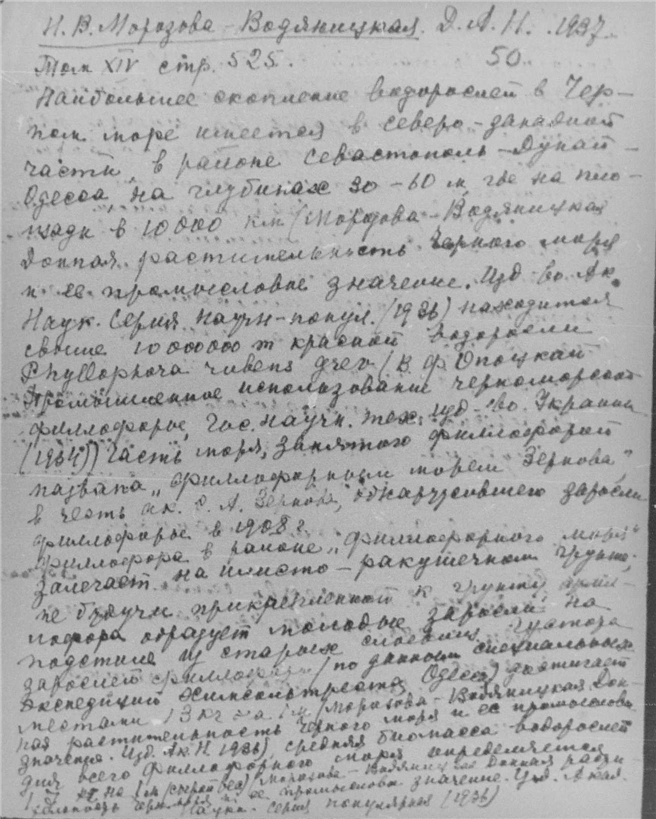 Н. В. Морозова-Водяницкая. Д. А. Н. 1937
Том XIV стр. 525. 50
Наибольшее скопление водорослей в Чер-
ном море имеется в северо-западной
части, в районе Севастополь-Дунай-
Одесса, на глубинах 30-60 м, где на пло-
щади в 10 000 км (Морозова-Водяницкая
Донная растительность Черного моря
и ее промысловое значение. Изд-во Ак.
Наук. Серия научн-попул. (1936) находится
свыше 10 000 000 т красной водоросли
Phyllophora rubens Grev (В. Ф. Опоцкий
Промышленное использование черноморской
филлофоры, Гос. научн. тех. изд-во. Украины
(1934)) Часть моря, занятого филлофорой
названа „филлофорным морем Зернова"
в честь ак. С. А. Зернова, обнаружившего заросли
филлофоры в 1908 г.
Филлофора в районе „филлофорного моря"
залегает на илисто-ракушечном грунте,
не будучи прикрепленной к грунту, фил-
лофора образует молодые заросли на
подстилке из старых слоевищ густота
зарослей филлофоры (по данным специальных
экспедиций Химсольтреста, Одесса) достигает
местами 13 кг на 1 м (Морозова-Водяницкая Дон-
ная растительность Черного моря и ее промысловое
значение. Изд. Ак. Н. 1936), средняя биомасса водорослей
для всего филлофорного моря определяется
1,7 кг на 1 м (сырой вес) Морозова-Водяницкая Донная расти-
тельность Черн. моря и ее промысловое значение. Изд. Акад.
Наук. Серия популярная (1936)